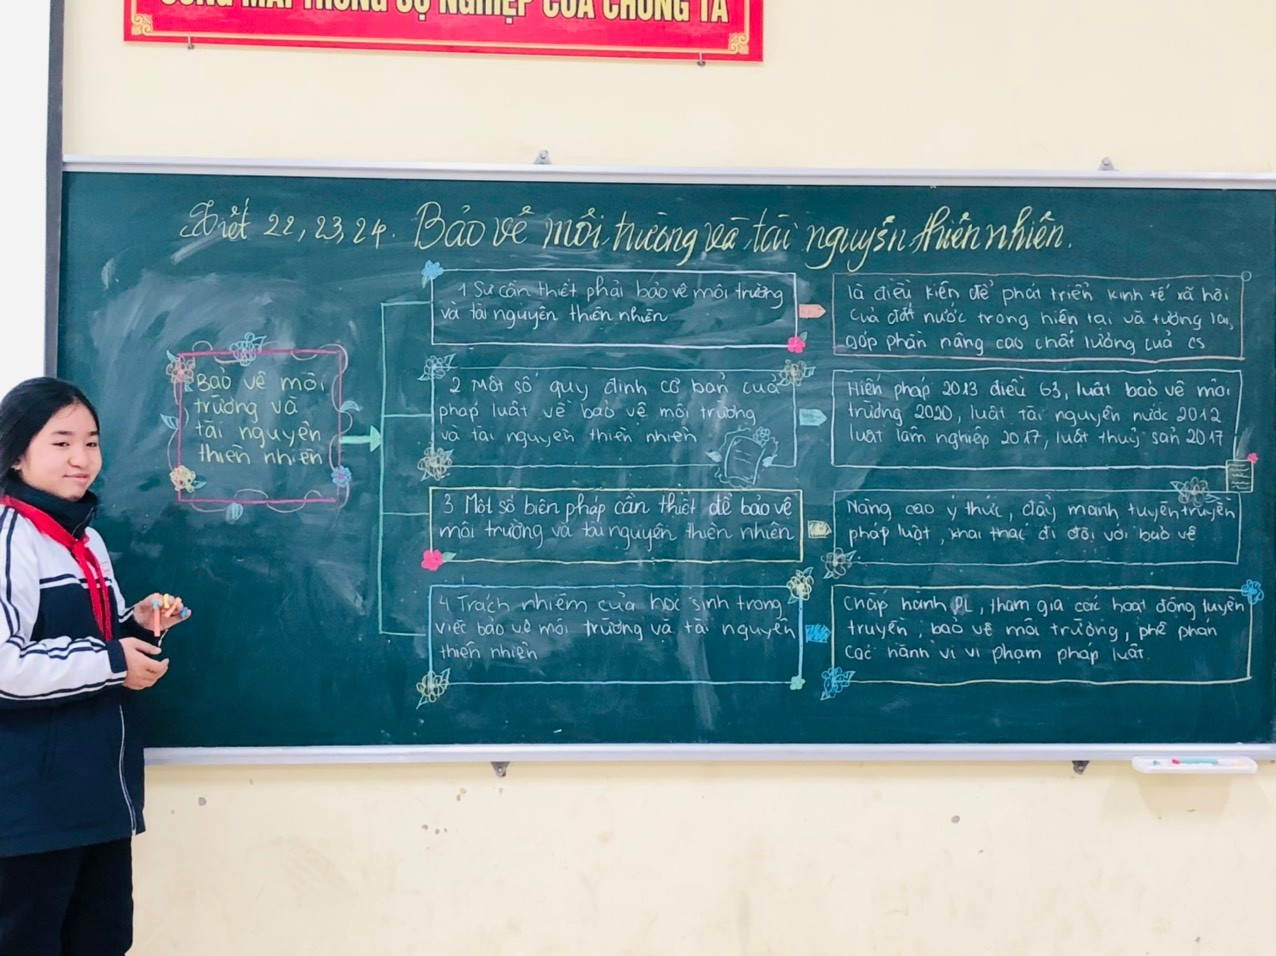 CÔNG MÀ TRONG SỰ NGHIỆP CỦA CHÚNG TA
Tiết 22, 23, 24. Bảo vệ môi trường và tài nguyên thiên nhiên.
Bảo vệ môi
trường và
tài nguyên
thiên nhiên
1 Sự cần thiết phải bảo vệ môi trường
và tài nguyên thiên nhiên
là điều kiện để phát triển kinh tế xã hội
của đất nước trong hiện tại và tương lai,
góp phần nâng cao chất lượng của cs
2 Một số quy định cơ bản của
pháp luật về bảo vệ môi trường
và tài nguyên thiên nhiên
Hiến pháp 2013 điều 63, luật bảo vệ môi
trường 2020, luật tài nguyên nước 2012
luật lâm nghiệp 2017, luật thuỷ sản 2017
3 Một số biện pháp cần thiết để bảo vệ
môi trường và tài nguyên thiên nhiên
Nâng cao ý thức, đẩy mạnh tuyên truyền
pháp luật, khai thác đi đôi với bảo vệ
4 Trách nhiệm của học sinh trong
việc bảo vệ môi trường và tài nguyên
thiên nhiên
Chấp hành PL, tham gia các hoạt động tuyên
truyền, bảo vệ môi trường, phê phán
các hành vi vi phạm pháp luật.